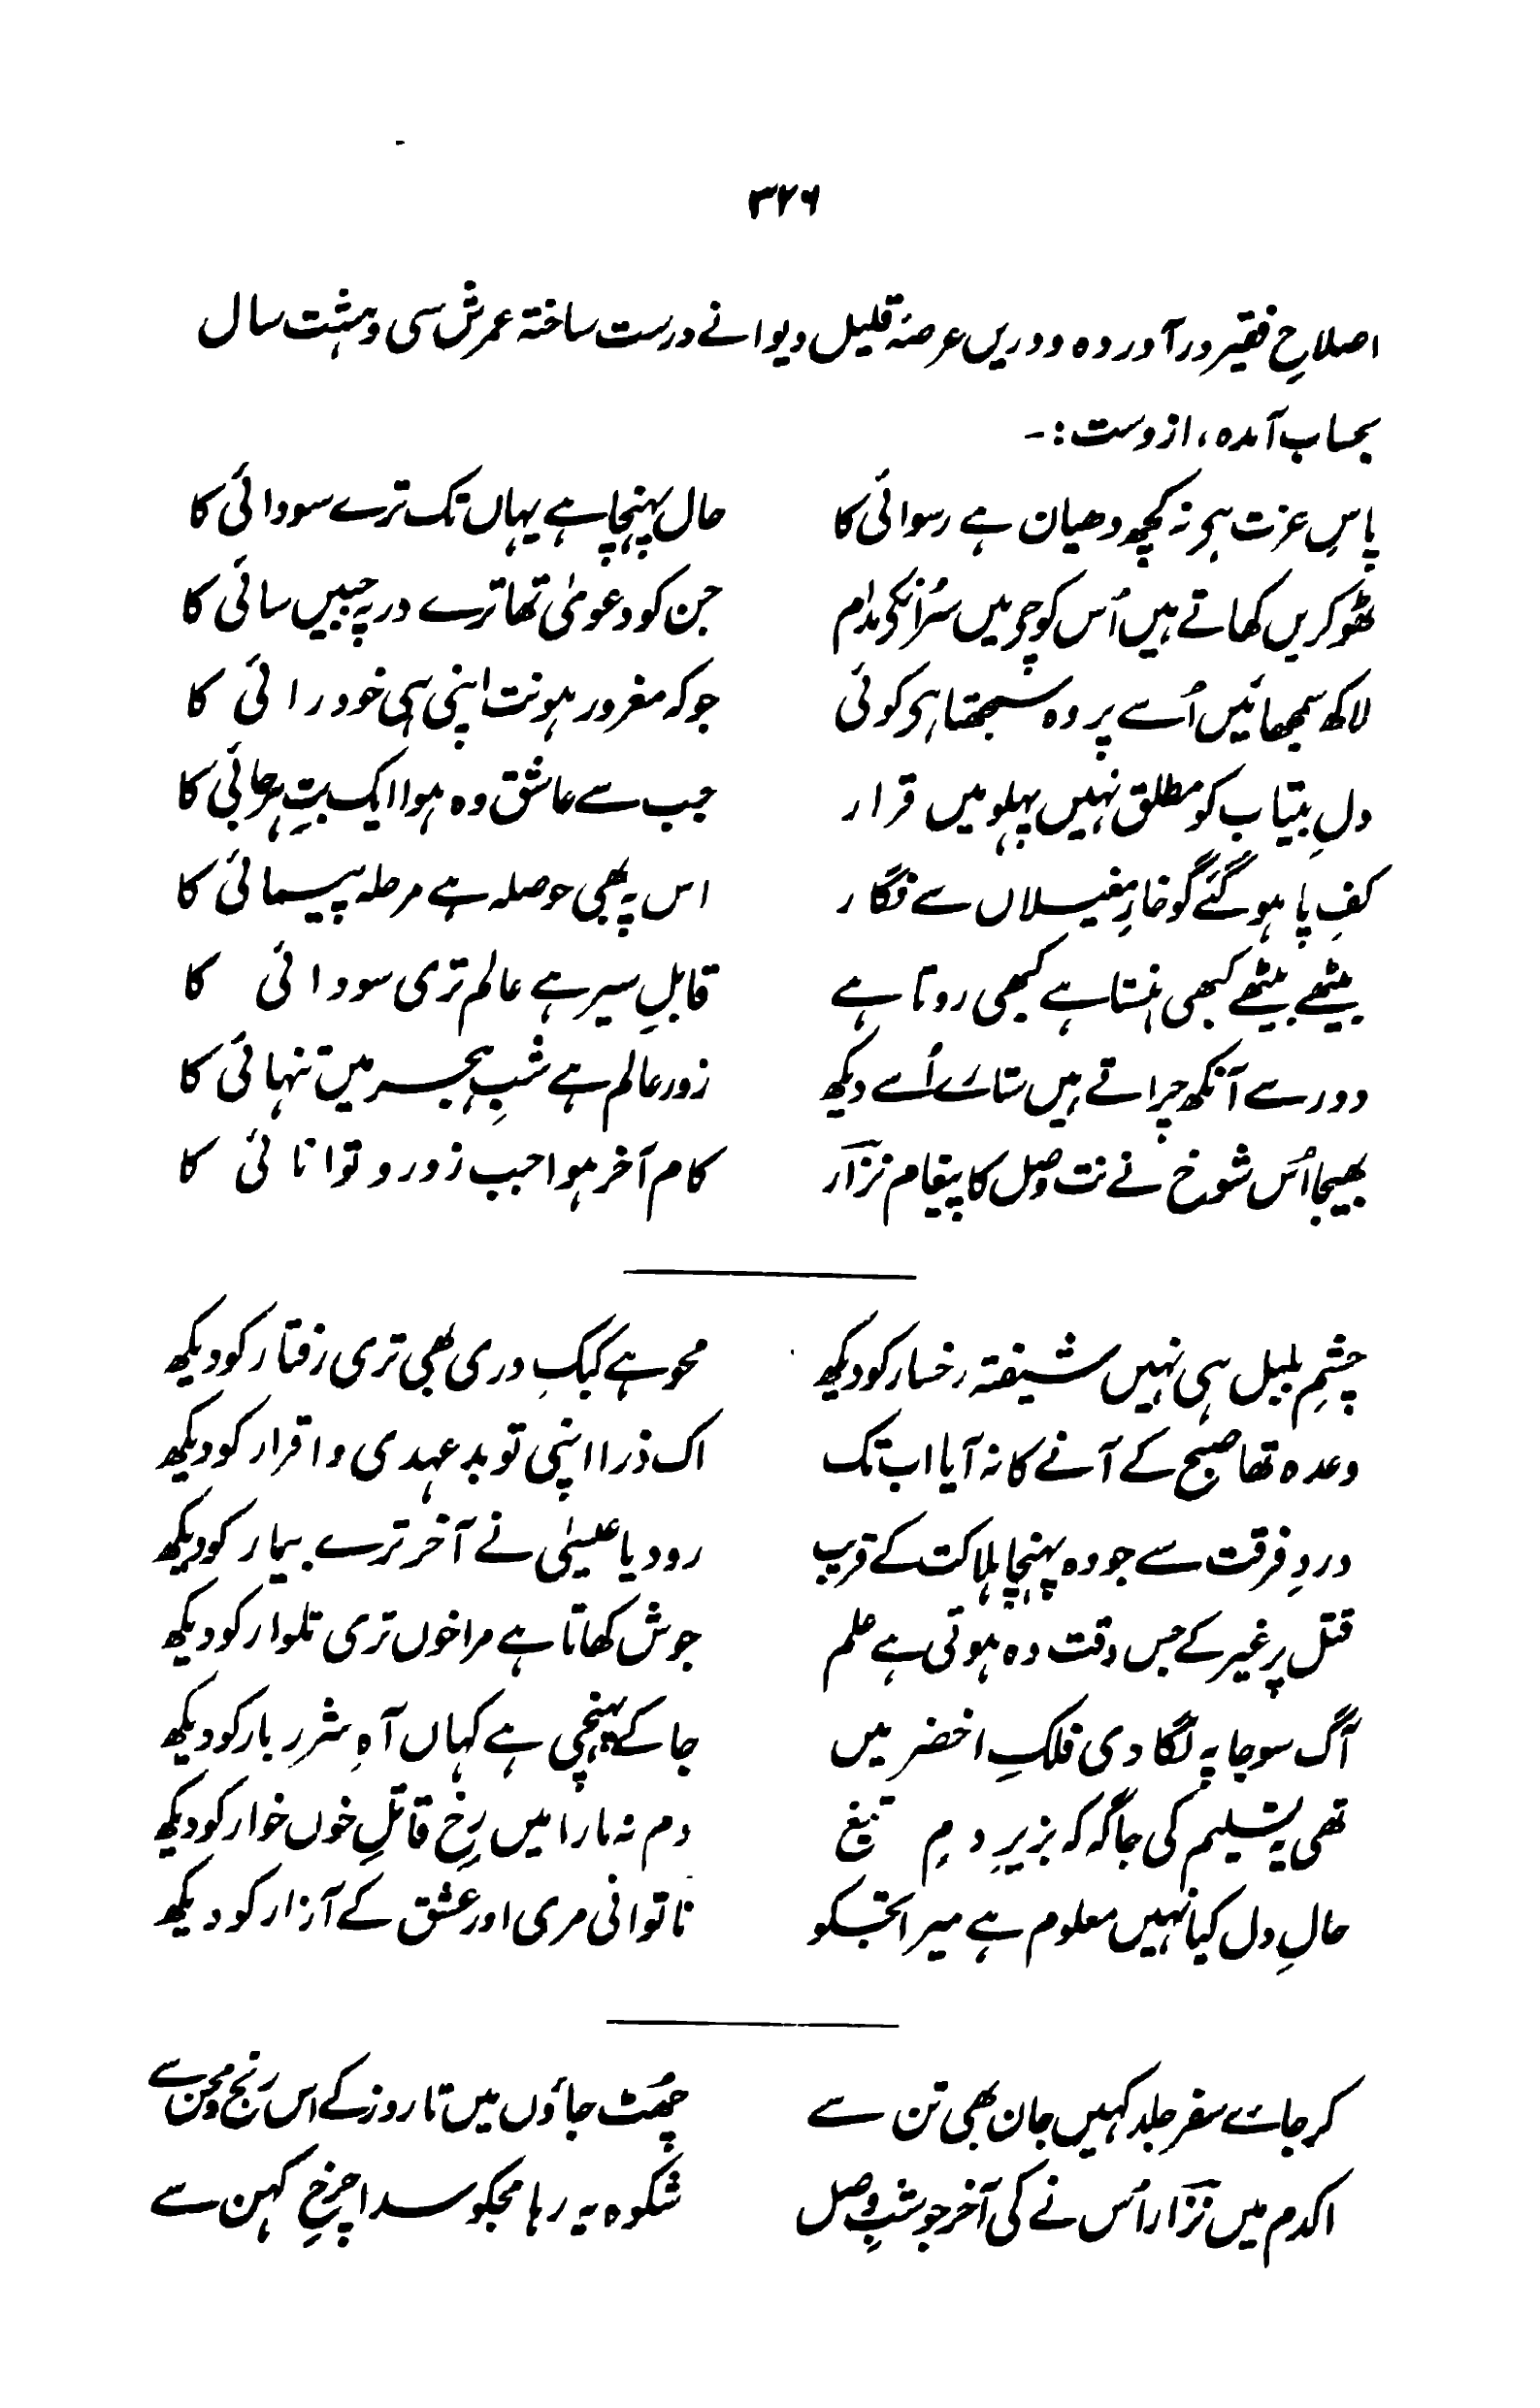 ۳۲۶
اصلاحِ فقیر درآوردہ و دریں عرصۂ قلیل دیوانے درست ساختہ عمرش سی و ہشت سال
بحساب آمدہ، از وست :-
پاسِ عزت ہی نہ کچھ دھیان ہے رسوائی کا حال پہنچا ہے یہاں تک ترے سودائی کا
ٹھوکریں کھاتے ہیں اُس کوچہ میں سرُ انکی مدام جن کو دعویٰ تھا ترے در پہ جبیں سائی کا
لاکھ سمجھائیں اُسے پر وہ سمجھتا ہی کوئی جو کہ مغرور ہونت اپنی ہی خود رائی کا
دلِ بیتاب کو مطلق نہیں پہلو میں قرار جب سے عاشق وہ ہوا ایک بتِ ہرجائی کا
کفِ پا ہو گئے گو خارِ مغیلاں سے فگار اس پہ بھی حوصلہ ہے مرحلہ پیمائی کا
بیٹھے بیٹھے کبھی ہنستا ہے کبھی روتا ہے قابلِ سیر ہے عالم تری سودائی کا
دور سے آنکھ چراتے ہیں ستارے اُسے دیکھ زور عالم ہے شبِ ہجر میں تنہائی کا
بھیجا اُس شوخ نے نت وصل کا پیغام نزآر کام آخر ہوا جب زور و توانائی کا
چشمِ بلبل ہی نہیں شیفتہ رخسار کو دیکھ محو ہے کبکِ دری بھی تری رفتار کو دیکھ
وعدہ تھا صبح کے آنے کا نہ آیا اب تک اک ذرا اپنی تو بد عہدی و اقرار کو دیکھ
دردِ فرقت سے جو وہ پہنچا ہلاکت کے قریب رو دیا عیسیٰ نے آخر ترے بیمار کو دیکھ
قتل پر غیر کے جس وقت وہ ہوتی ہے علم جوش کھاتا ہے مرا خوں تری تلوار کو دیکھ
آگ سو جا پہ لگا دی فلکِ اخضر میں جا کے پہنچی ہے کہاں آہِ شرر بار کو دیکھ
تھی یہ تسلیم کی جاگہ کہ بزیرِ دمِ تیغ دم نہ مارا میں رخِ قاتلِ خوں خوار کو دیکھ
حالِ دل کیا نہیں معلوم ہے میرا تجھکو ناتوانی مری اور عشق کے آزار کو دیکھ
کر جائے سفر جلد کہیں جان بھی تن سے چھُٹ جاؤں میں تا روز کے اس رنج و محن سے
اکدم میں نزآر اُس نے کی آخر جو شبِ وصل شکوہ یہ رہا مجکو سدا چرخِ کہن سے